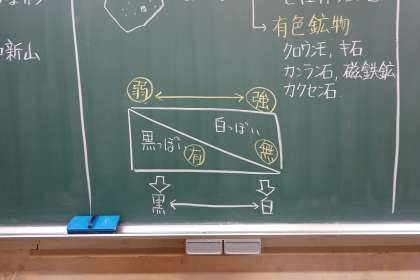 新山
有色鉱物
クロウンモ、キ石
カンラン石、磁鉄鉱
カクセン石
弱 強
白っぽい
黒っぽい 有 無
黒 白